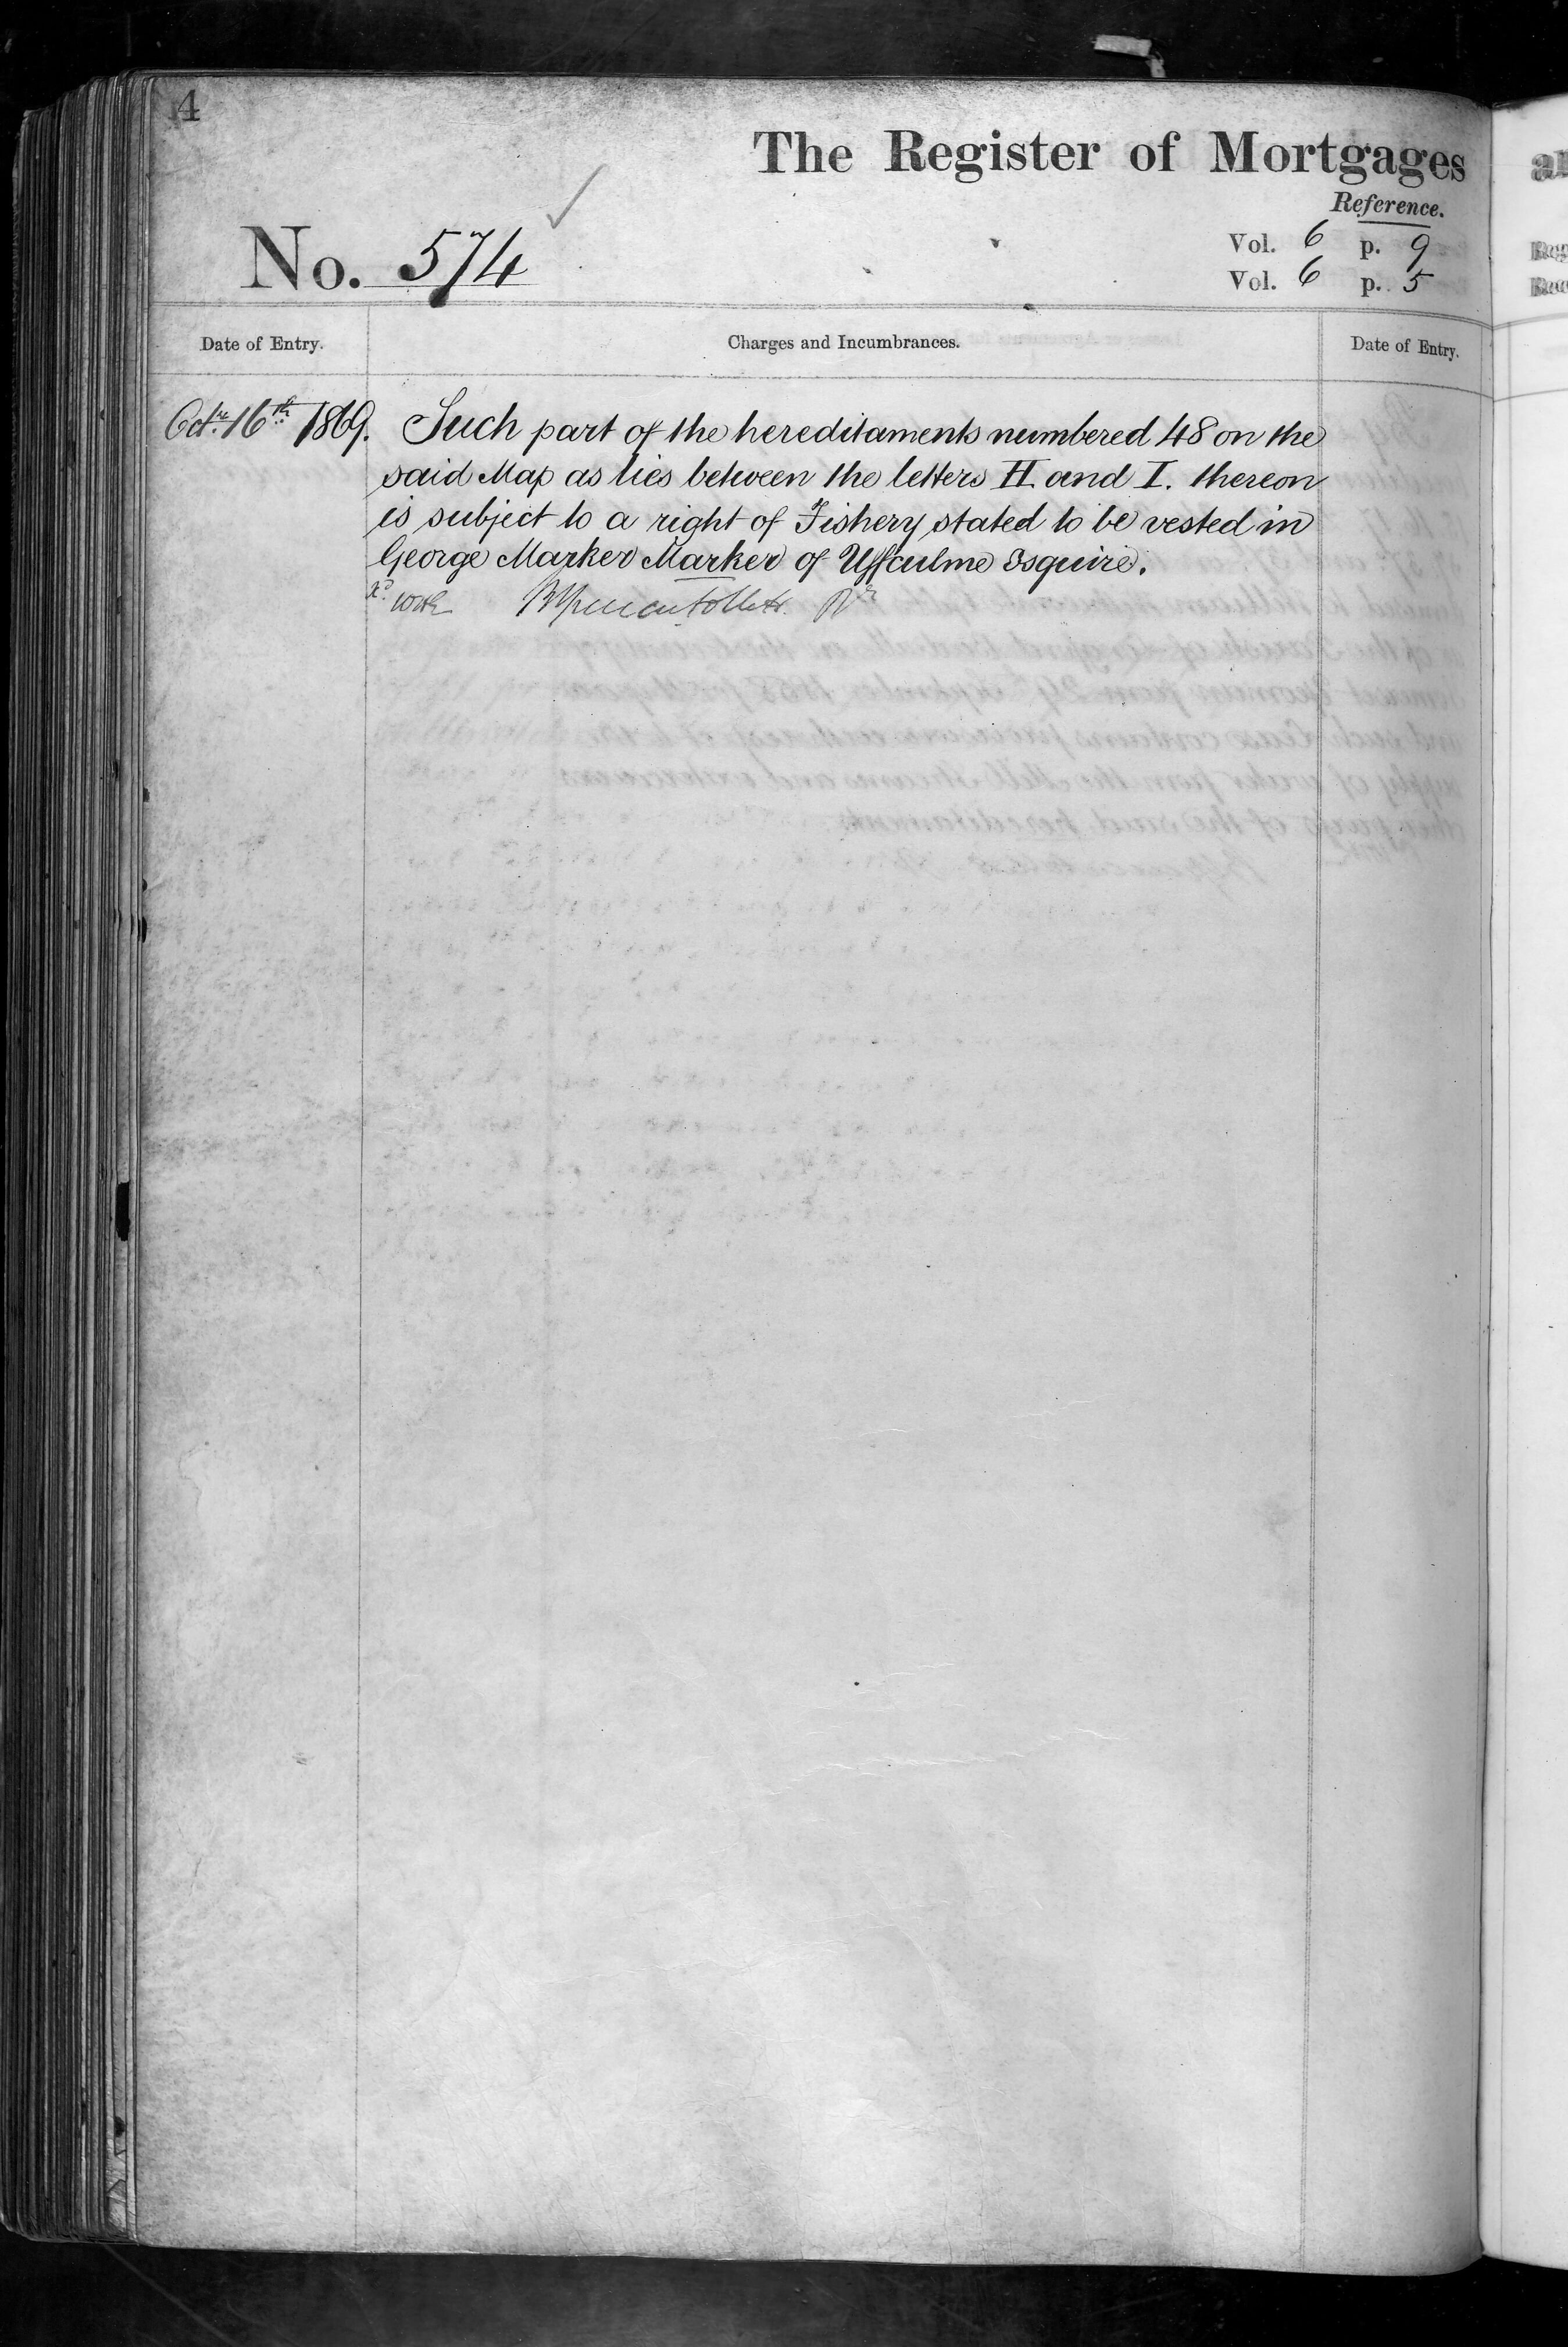 4
The Register of Mortgages
Reference.
No. 574
Vol. 6 p. 9
Vol. 6 p. 5
Date of Entry.
Charges and Incumbrances.
Date of Entry.
Octr. 16th 1869.
Such part of the hereditaments numbered 48 on the
said Map as lies between the letters H and I. thereon
is subject to a right of Fishery stated to be vested in
George Marker Marker of Uffculme Esquire.